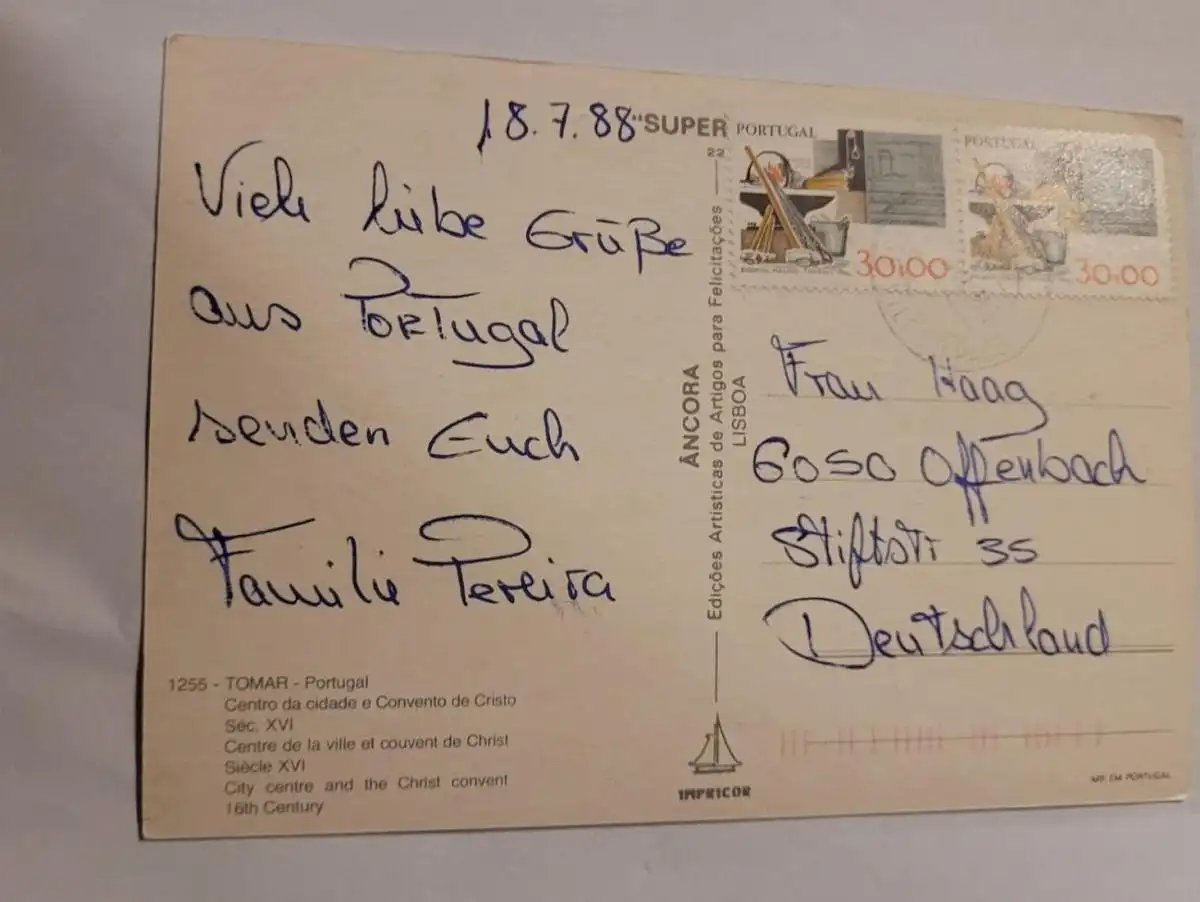 18.7.88
Viele liebe Grüße
aus Portugal
senden Euch
Familie Pereira
1255 - TOMAR - Portugal
Centro da cidade e Convento de Cristo
Séc. XVI
Centre de la ville et couvent de Christ
Siècle XVI
City centre and the Christ convent
16th Century
"SUPER
22
ÂNCORA
Edições Artísticas de Artigos para Felicitações
LISBOA
IMPRICOR
PORTUGAL
30.00
PORTUGAL
30.00
Frau Haag
6050 Offenbach
Stiftstr 35
Deutschland
IMP. EM PORTUGAL